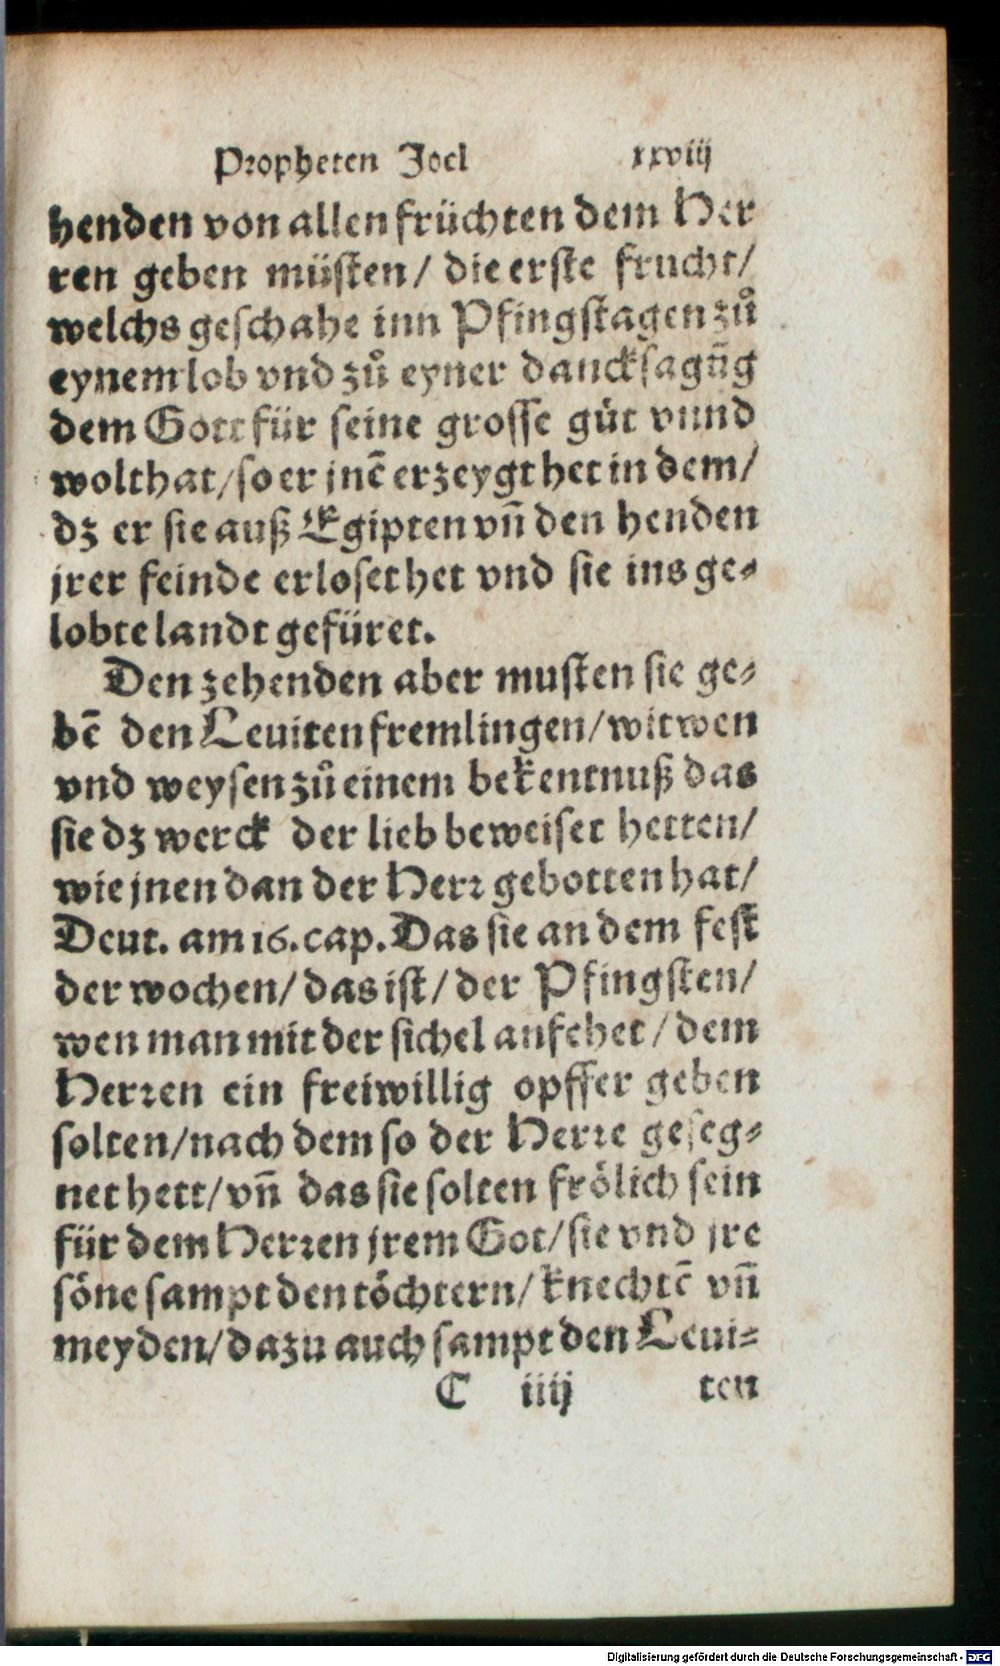 Propheten Joel xxviij
henden von allen früchten dem Her
ren geben müsten/ die erste frucht/
welchs geschahe inn Pfingstagen zů
eynem lob vnd zů eyner dancksagūg
dem Gott für seine grosse güt vnnd
wolthat/ so er jnē erzeygt het in dem/
dz er sie auß Egipten vñ den henden
jrer feinde erloset het vnd sie ins ge-
lobte landt gefüret.
Den zehenden aber musten sie ge-
bē den Leuiten fremlingen/ witwen
vnd weysen zů einem bekentnuß das
sie dz werck der lieb beweiset hetten/
wie jnen dan der Herr gebotten hat/
Deut. am 16. cap. Das sie an dem fest
der wochen/ das ist/ der Pfingsten/
wen man mit der sichel anfehet/ dem
Herren ein freiwillig opffer geben
solten/ nach dem so der Herre geseg-
net hett/ vñ das sie solten frölich sein
für dem Herren jrem Got/ sie vnd jre
söne sampt den töchtern/ knechtē vñ
meyden/ dazu auch sampt den Leui-
C iiij ten
Digitalisierung gefördert durch die Deutsche Forschungsgemeinschaft - DFG